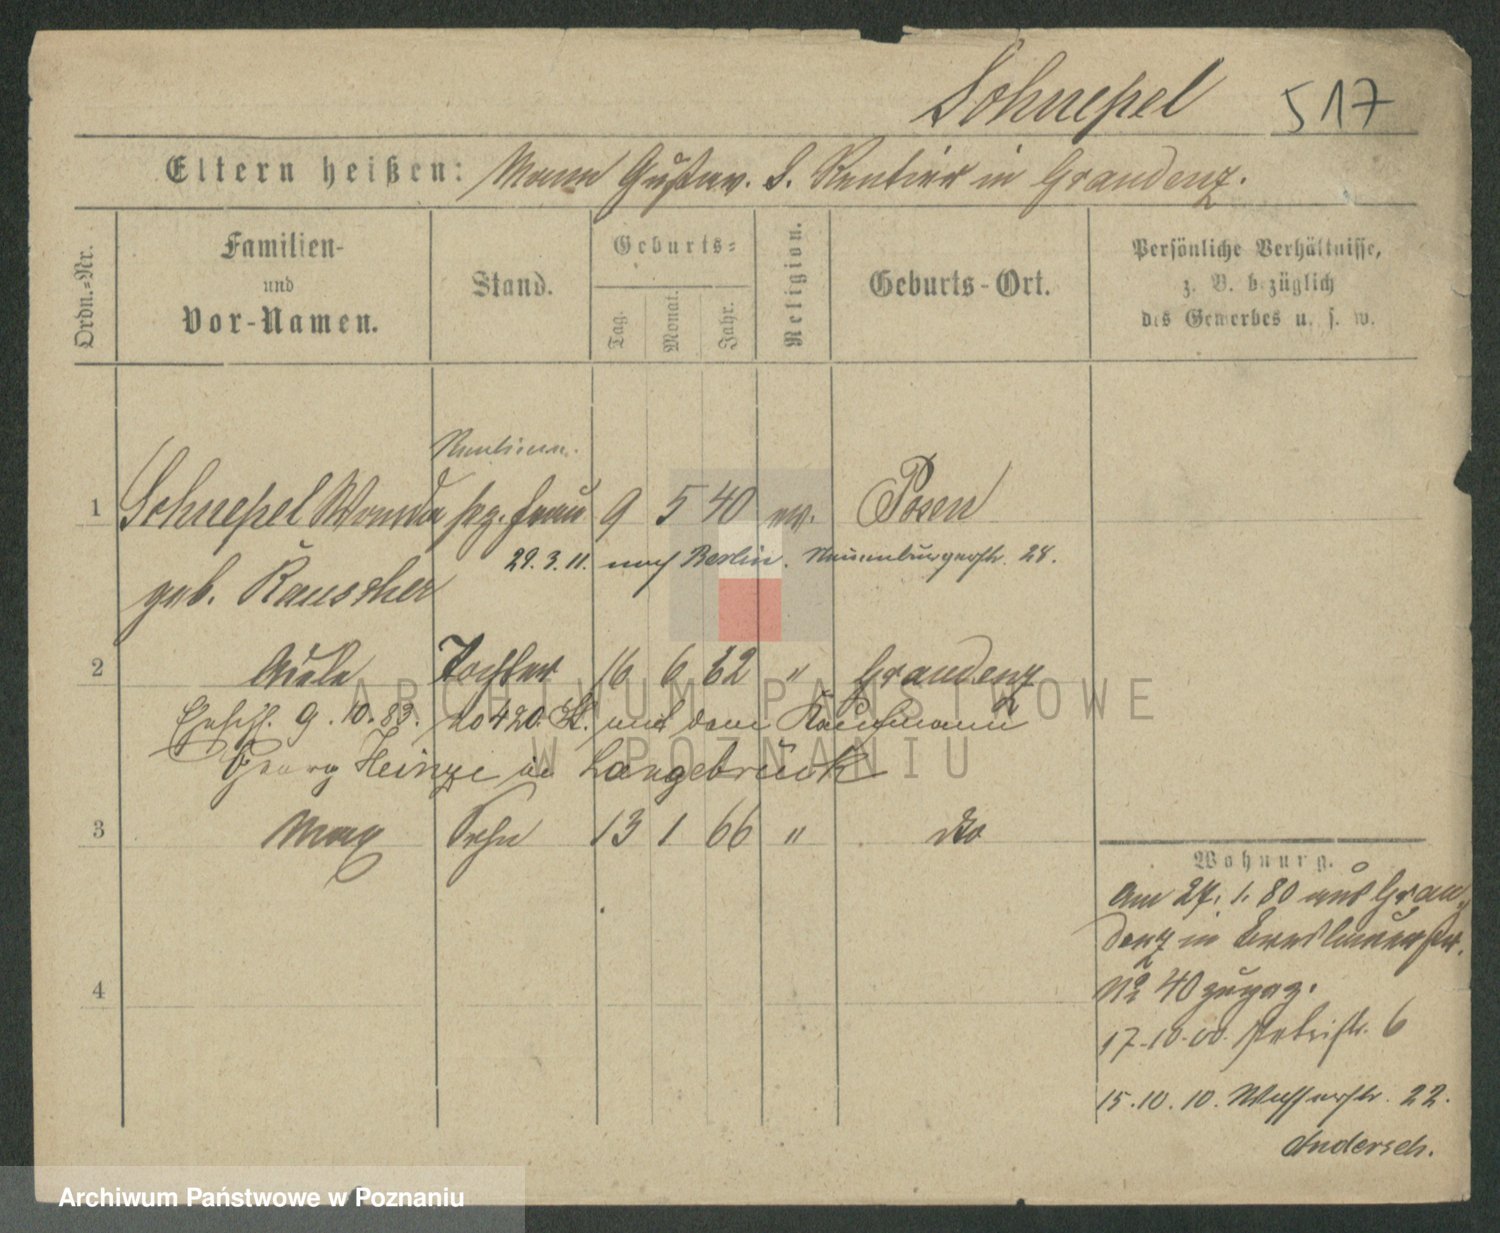 Schnepel 517
Eltern heißen: Mann Gustav. S. Rentier in Graudenz.
Ordn.-Nr.
Familien-
und
Vor-Namen.
Stand.
Geburts-
Tag.
Monat.
Jahr.
Religion.
Geburts-Ort.
Persönliche Verhältnisse,
z. B. bezüglich
des Gewerbes u. s. w.
1 Schnepel Wanda Frau 9 5 40 ev. Posen
29.3.11. nach Berlin. Neuenburgerstr. 28.
geb. Rauscher
2 Tochter 16 6 62 " Graudenz
9.10.83. No 420 mit dem Kaufmann
Georg Heinze in Langebrück
3 Max Sohn 13 1 66 " do
4
Wohnung.
Am 27.1.80 aus Grau-
denz in Breslauerstr.
No 40 zugez.
17.10.00. Petristr. 6
15.10.10. Wasserstr. 22.
Andersch.
ARCHIWUM PAŃSTWOWE
W POZNANIU
Archiwum Państwowe w Poznaniu